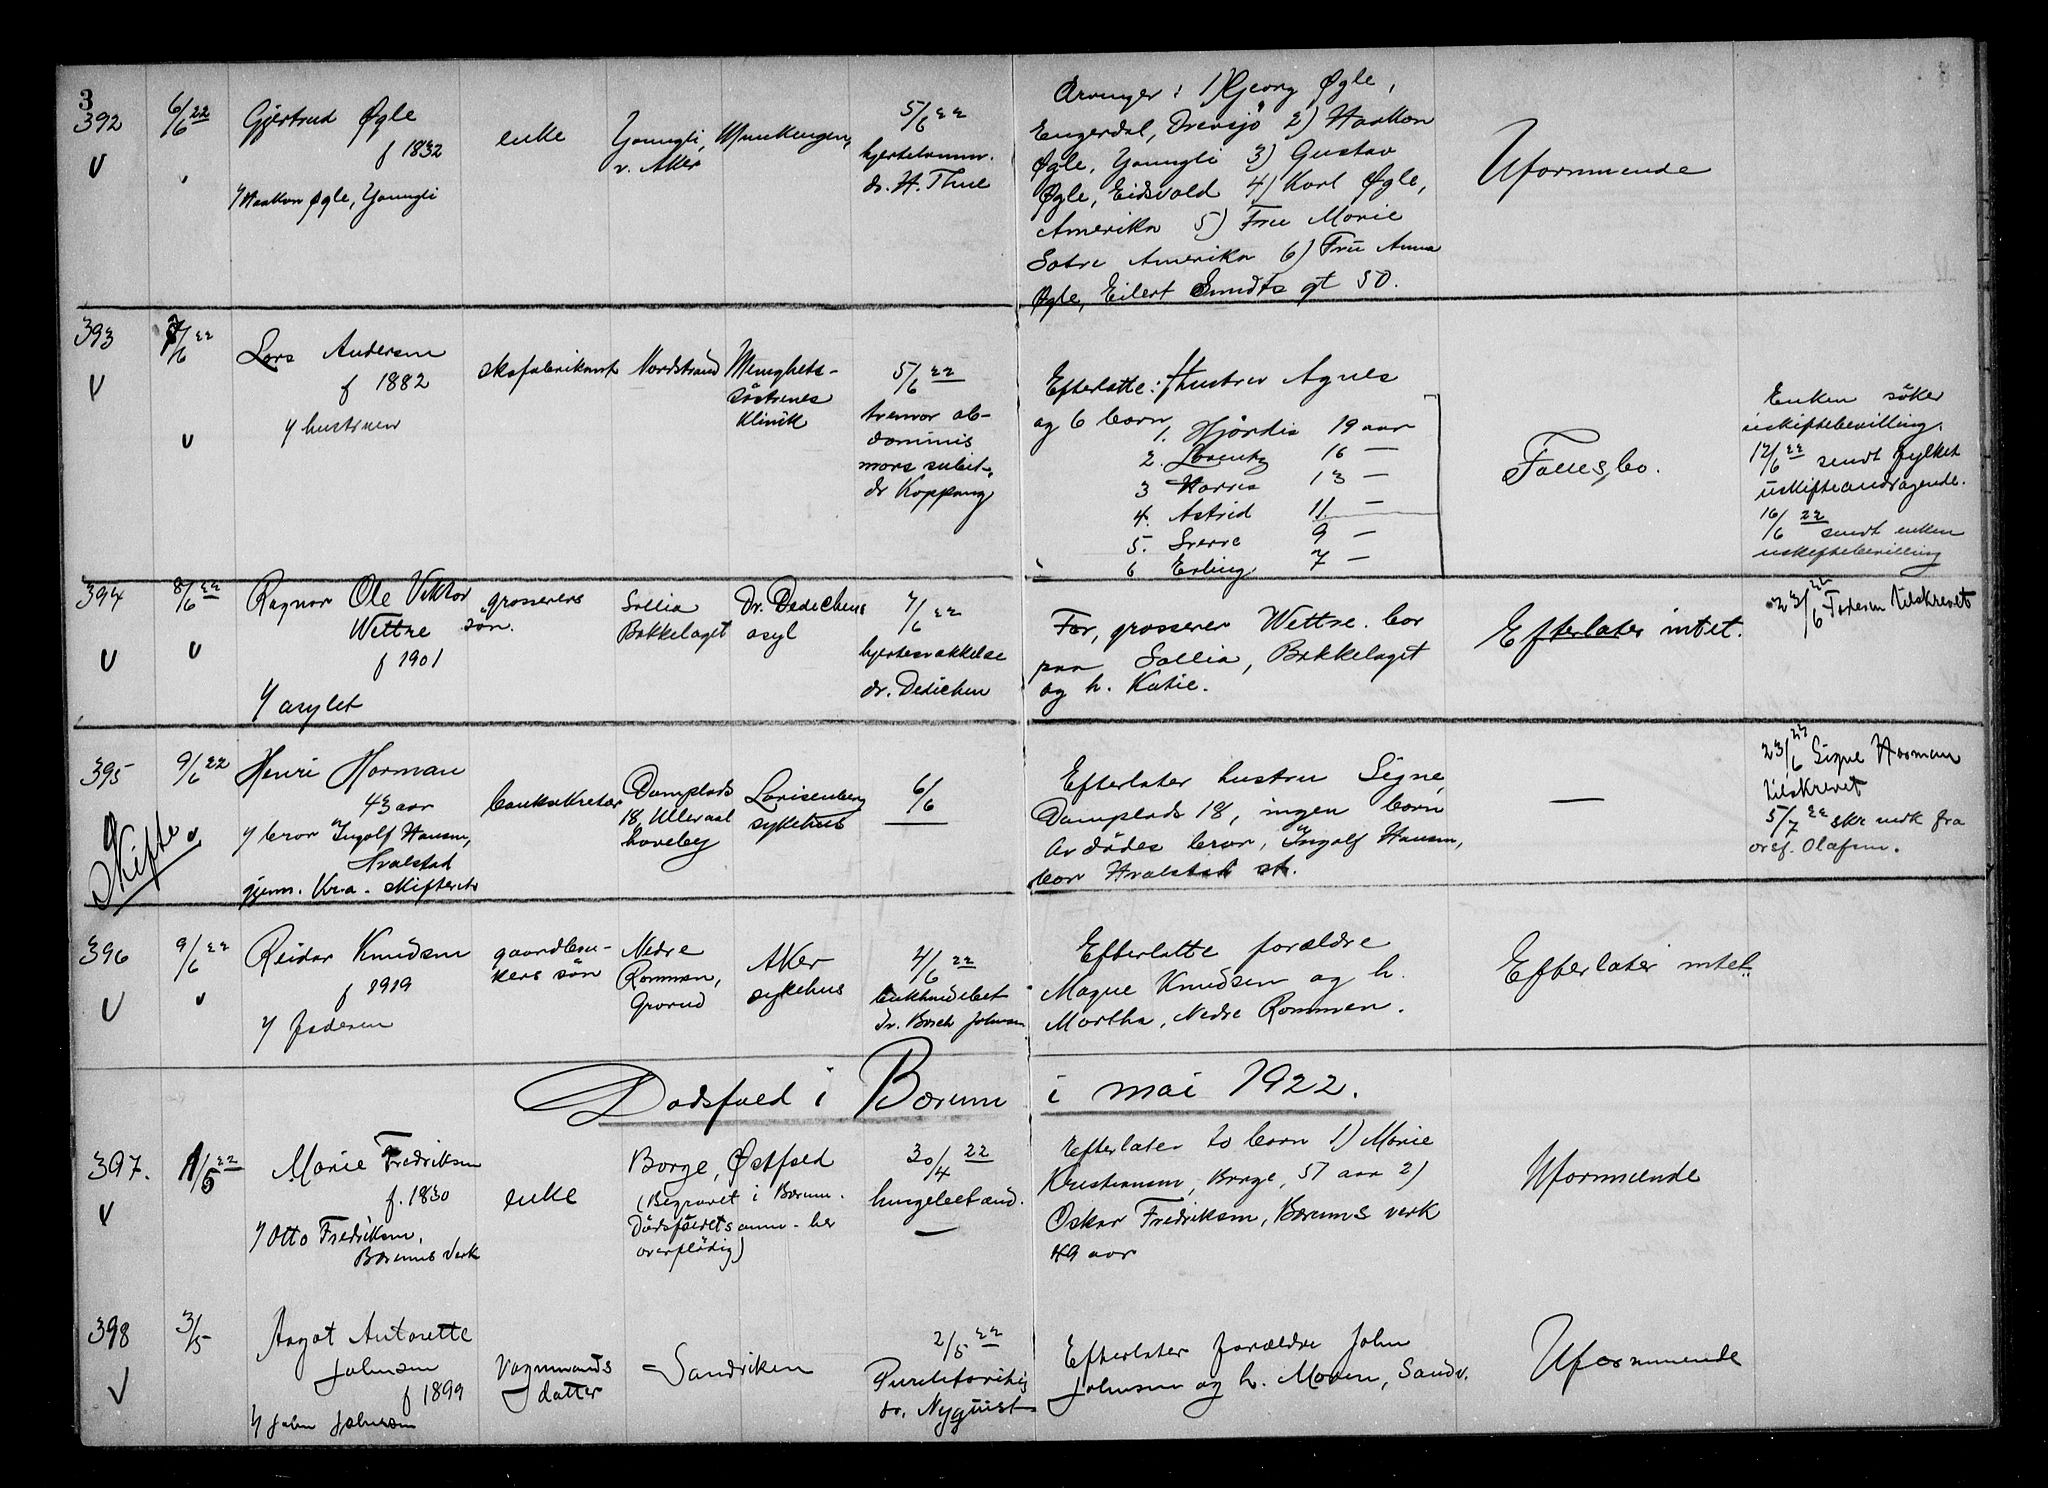 3
392
6/6 22
Gjertrud Øgle
f 1832
v/ Haakon Øgle, Youngli
enke
Youngli,
v. Aker
Munkengen,
5/6 22
hjertelamm.
dr. H. Thue
Arvinger: 1) Georg Øgle,
Engerdal, Drevsjö 2) Haakon
Øgle, Youngli 3) Gustav
Øgle, Eidsvold 4) Karl Øgle,
Amerika 5) Fru Marie
Sotre Amerika 6) Fru Anna
Øgle, Eilert Sundts gt 50.
Uformuende
393
7/6 22
Lars Andersen
f 1882
v/ hustruen
skofabrikant
Nordstrand
Menighets-
söstrenes
Klinik
5/6 22
tumor ab-
dominis
mors subit.
dr Koppang
Efterlatte: hustru Agnes
og 6 barn
1. Hjördis 19 aar
2. Lorentz 16 —
3 Harris 13 —
4. Astrid 11 —
5. Sverre 9 —
6 Erling 7 —
Fællesbo.
Enken söker
uskiftebevilling.
12/6 22 sendt fylket
uskifteandragende.
16/6 22 sendt enken
uskiftebevilling
394
8/6 22
Ragnar Ole Viktor
Wettre
f 1901
v/ asylet
grosserers
sön.
Sollia
Bækkelaget
Dr. Dedichens
asyl
7/6 22
hjertesvækkelse
dr. Dedichen
Far, grosserer Wettre. bor
paa Sollia, Bækkelaget
og h. Katie.
Efterlater intet.
23/6 22 Faderen tilskrevet
395
Skifte
9/6 22
Henri Horman
43 aar
v/ bror Ingolf Hansen,
Hvalstad
gjenn. Kr.a. skifterett
banksekretær
Damplads
18, Ullevaal
haveby
Lovisenberg
sykehus
6/6
Efterlater hustru Signe,
Damplads 18, ingen barn
Avdødes bror, Ingolf Hansen,
bor Hvalstad st.
—
23/6 22 Signe Horman
tilskrevet
5/7 22 skr. medk fra
orsf. Olafsen.
396
9/6 22
Reidar Knudsen
f 1919
v/ faderen
gaardbru-
kers sön
Nedre
Rommen,
Grorud
Aker
sykehus
4/6 22
bukhindebet
dr. Borch Johnsen
Efterlatte forældre
Magne Knudsen og h.
Martha, Nedre Rommen.
Efterlater intet.
Dødsfald i Bærum i mai 1922.
397.
1/5 22
Marie Fredriksen
f. 1830
v/ Otto Fredriksen,
Bærums Verk
enke
Borge, Østfold
(Begravet i Bærum.
Dödsfaldsanm. her
overflödig)
30/4 22
lungebetænd.
—
Efterlater to barn 1) Marie
Kristiansen, Borge, 57 aar 2)
Oskar Fredriksen, Bærums verk
49 aar
Uformuende
398
3/5
Aagot Antonette
Johnsen
f 1899
v/ John Johnsen
Vognmands
datter
Sandviken
2/5 22
dr. Nyquist
Efterlater forældre John
Johnsen og h. Maren, Sandv.
Uformuende